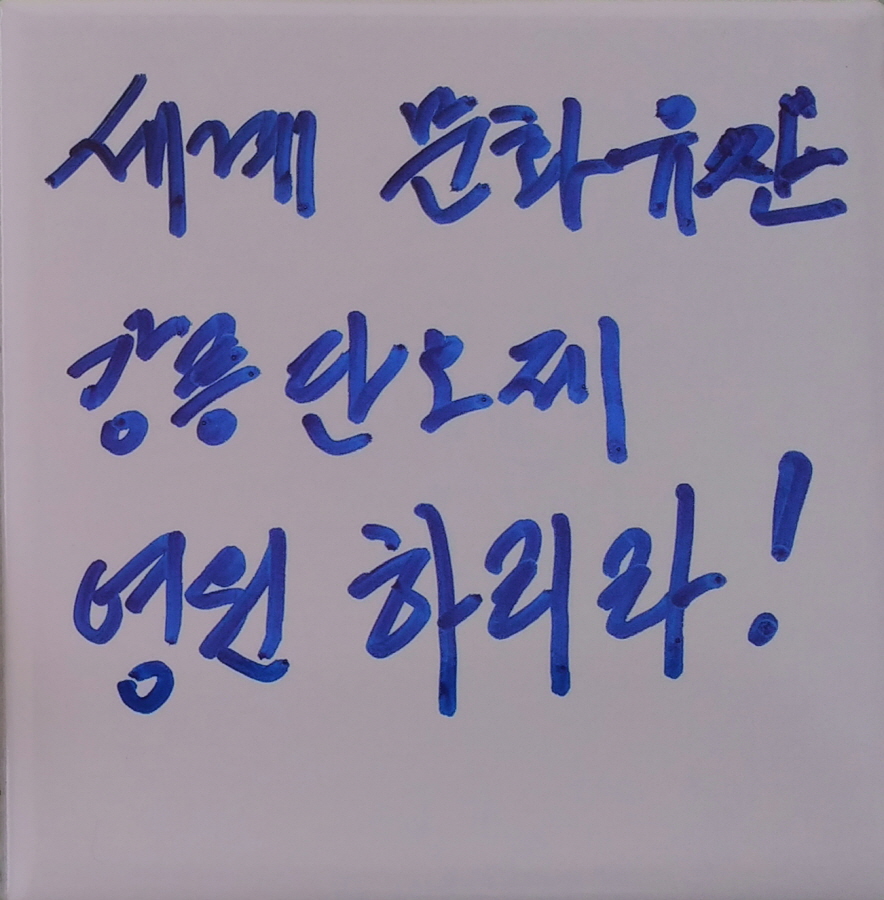 세계 문화유산
강릉 단오제
영원 하리라!